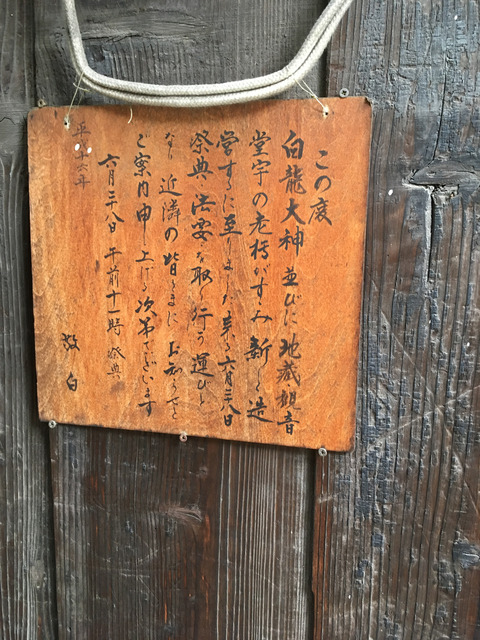 この度
白龍大神並びに地蔵観音
堂宇の老朽がすゝみ新しく造
営するに至りました来る六月二八日
祭典、法要を取り行う運びと
なり近隣の皆さまにお知らせと
ご案内申し上げる次第でございます
六月二八日 午前十一時 祭典
六年
敬白